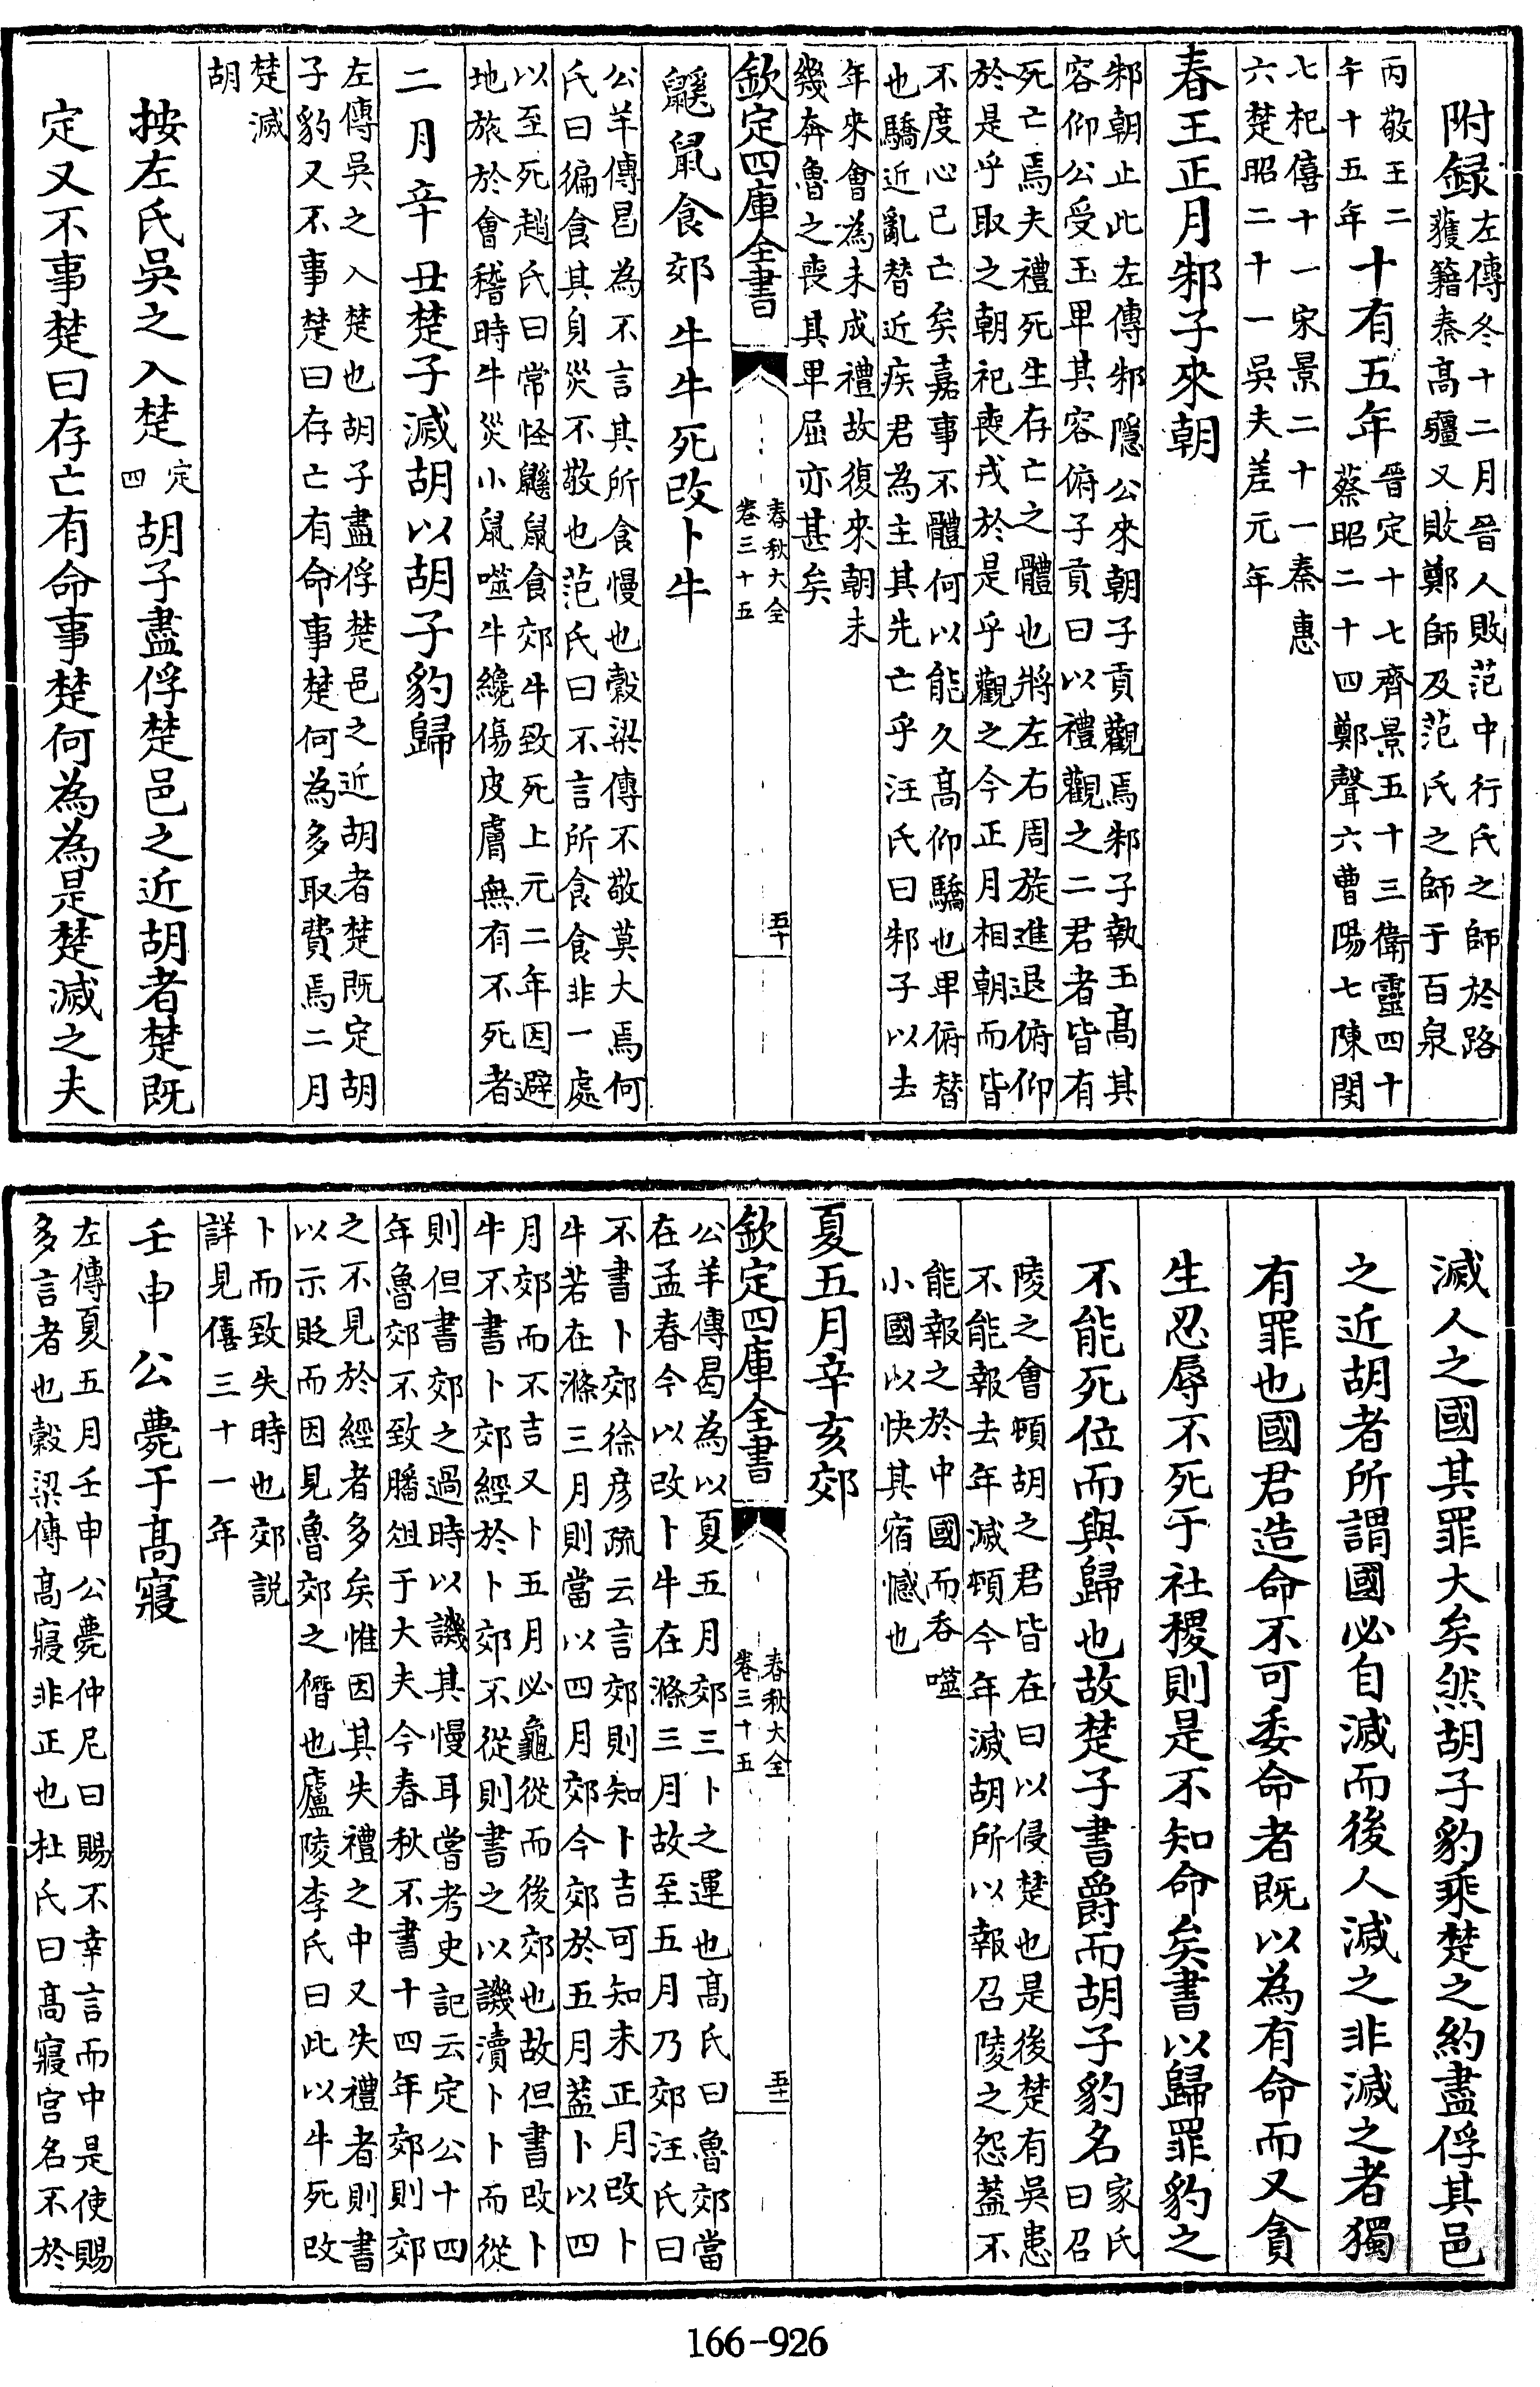 附録 左傳冬十二月晉人敗范中行氏之師於路
獲籍秦高彊又敗鄭師及范氏之師于百泉
丙敬王二
午十五年
十有五年
晉定十七齊景五十三衛靈四十
蔡昭二十四鄭聲六曹陽七陳閔
七杞僖十一宋景二十一秦惠
六楚昭二十一吳夫差元年
春王正月邾子來朝
邾朝止此左傳邾隱公來朝子貢觀焉邾子執玉高其
容仰公受玉卑其容俯子貢曰以禮觀之二君者皆有
死亡焉夫禮死生存亡之體也將左右周旋進退俯仰
於是乎取之朝祀喪戎於是乎觀之今正月相朝而皆
不度心已亡矣嘉事不體何以能久高仰驕也卑俯替
也驕近亂替近疾君為主其先亡乎汪氏曰邾子以去
年來會為未成禮故復來朝未
幾奔魯之喪其卑屈亦甚矣
欽定四庫全書
春秋大全
卷三十五
五十
鼷鼠食郊牛牛死改卜牛
公羊傳曷為不言其所食慢也穀梁傳不敬莫大焉何
氏曰徧食其身災不敬也范氏曰不言所食食非一處
以至死趙氏曰常怪鼷鼠食郊牛致死上元二年因避
地旅於會稽時牛災小鼠噬牛纔傷皮膚無有不死者
二月辛丑楚子滅胡以胡子豹歸
左傳吳之入楚也胡子盡俘楚邑之近胡者楚既定胡
子豹又不事楚曰存亡有命事楚何為多取費焉二月
楚滅
胡
按左氏吳之入楚
定
四
胡子盡俘楚邑之近胡者楚既
定又不事楚曰存亡有命事楚何為為是楚滅之夫
滅人之國其罪大矣然胡子豹乘楚之約盡俘其邑
之近胡者所謂國必自滅而後人滅之非滅之者獨
有罪也國君造命不可委命者既以為有命而又貪
生忍辱不死于社稷則是不知命矣書以歸罪豹之
不能死位而與歸也故楚子書爵而胡子豹名
家氏
曰召
陵之會頓胡之君皆在曰以侵楚也是後楚有吳患
不能報去年滅頓今年滅胡所以報召陵之怨蓋不
能報之於中國而吞噬
小國以快其宿憾也
夏五月辛亥郊
公羊傳曷為以夏五月郊三卜之運也高氏曰魯郊當
在孟春今以改卜牛在滌三月故至五月乃郊汪氏曰
欽定四庫全書
春秋大全
卷三十五
五十一
不書卜郊徐彦疏云言郊則知卜吉可知未正月改卜
牛若在滌三月則當以四月郊今郊於五月蓋卜以四
月郊而不吉又卜五月必龜從而後郊也故但書改卜
牛不書卜郊經於卜郊不從則書之以譏瀆卜卜而從
則但書郊之過時以譏其慢耳嘗考史記云定公十四
年魯郊不致膰俎于大夫今春秋不書十四年郊則郊
之不見於經者多矣惟因其失禮之中又失禮者則書
以示貶而因見魯郊之僭也廬陵李氏曰此以牛死改
卜而致失時也郊説
詳見僖三十一年
壬申公薨于高寢
左傳夏五月壬申公薨仲尼曰賜不幸言而中是使賜
多言者也穀梁傳高寢非正也杜氏曰高寢宫名不於
166-926